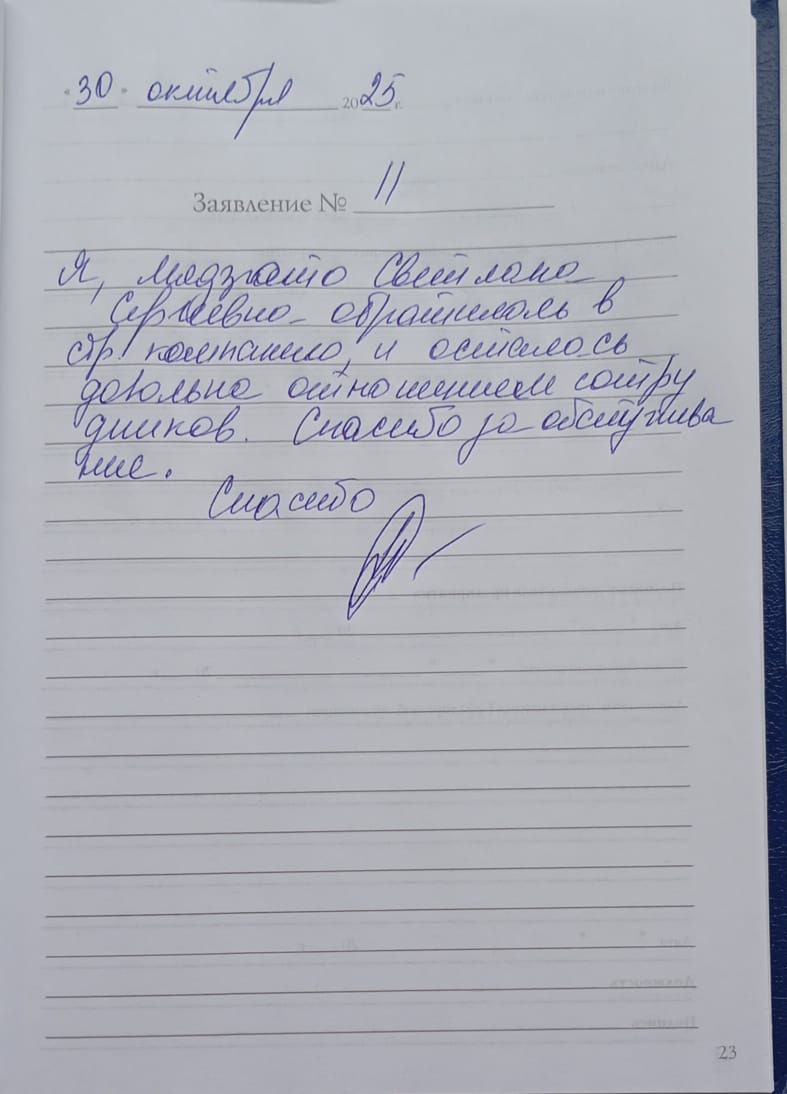 "30" октября 2025 г.
Заявление № 11
Я, Светлана
Сергеевна обратилась в
стр. компанию, и осталась
довольна отношением сотру
дников. Спасибо за обслужива
ние.
Спасибо
23